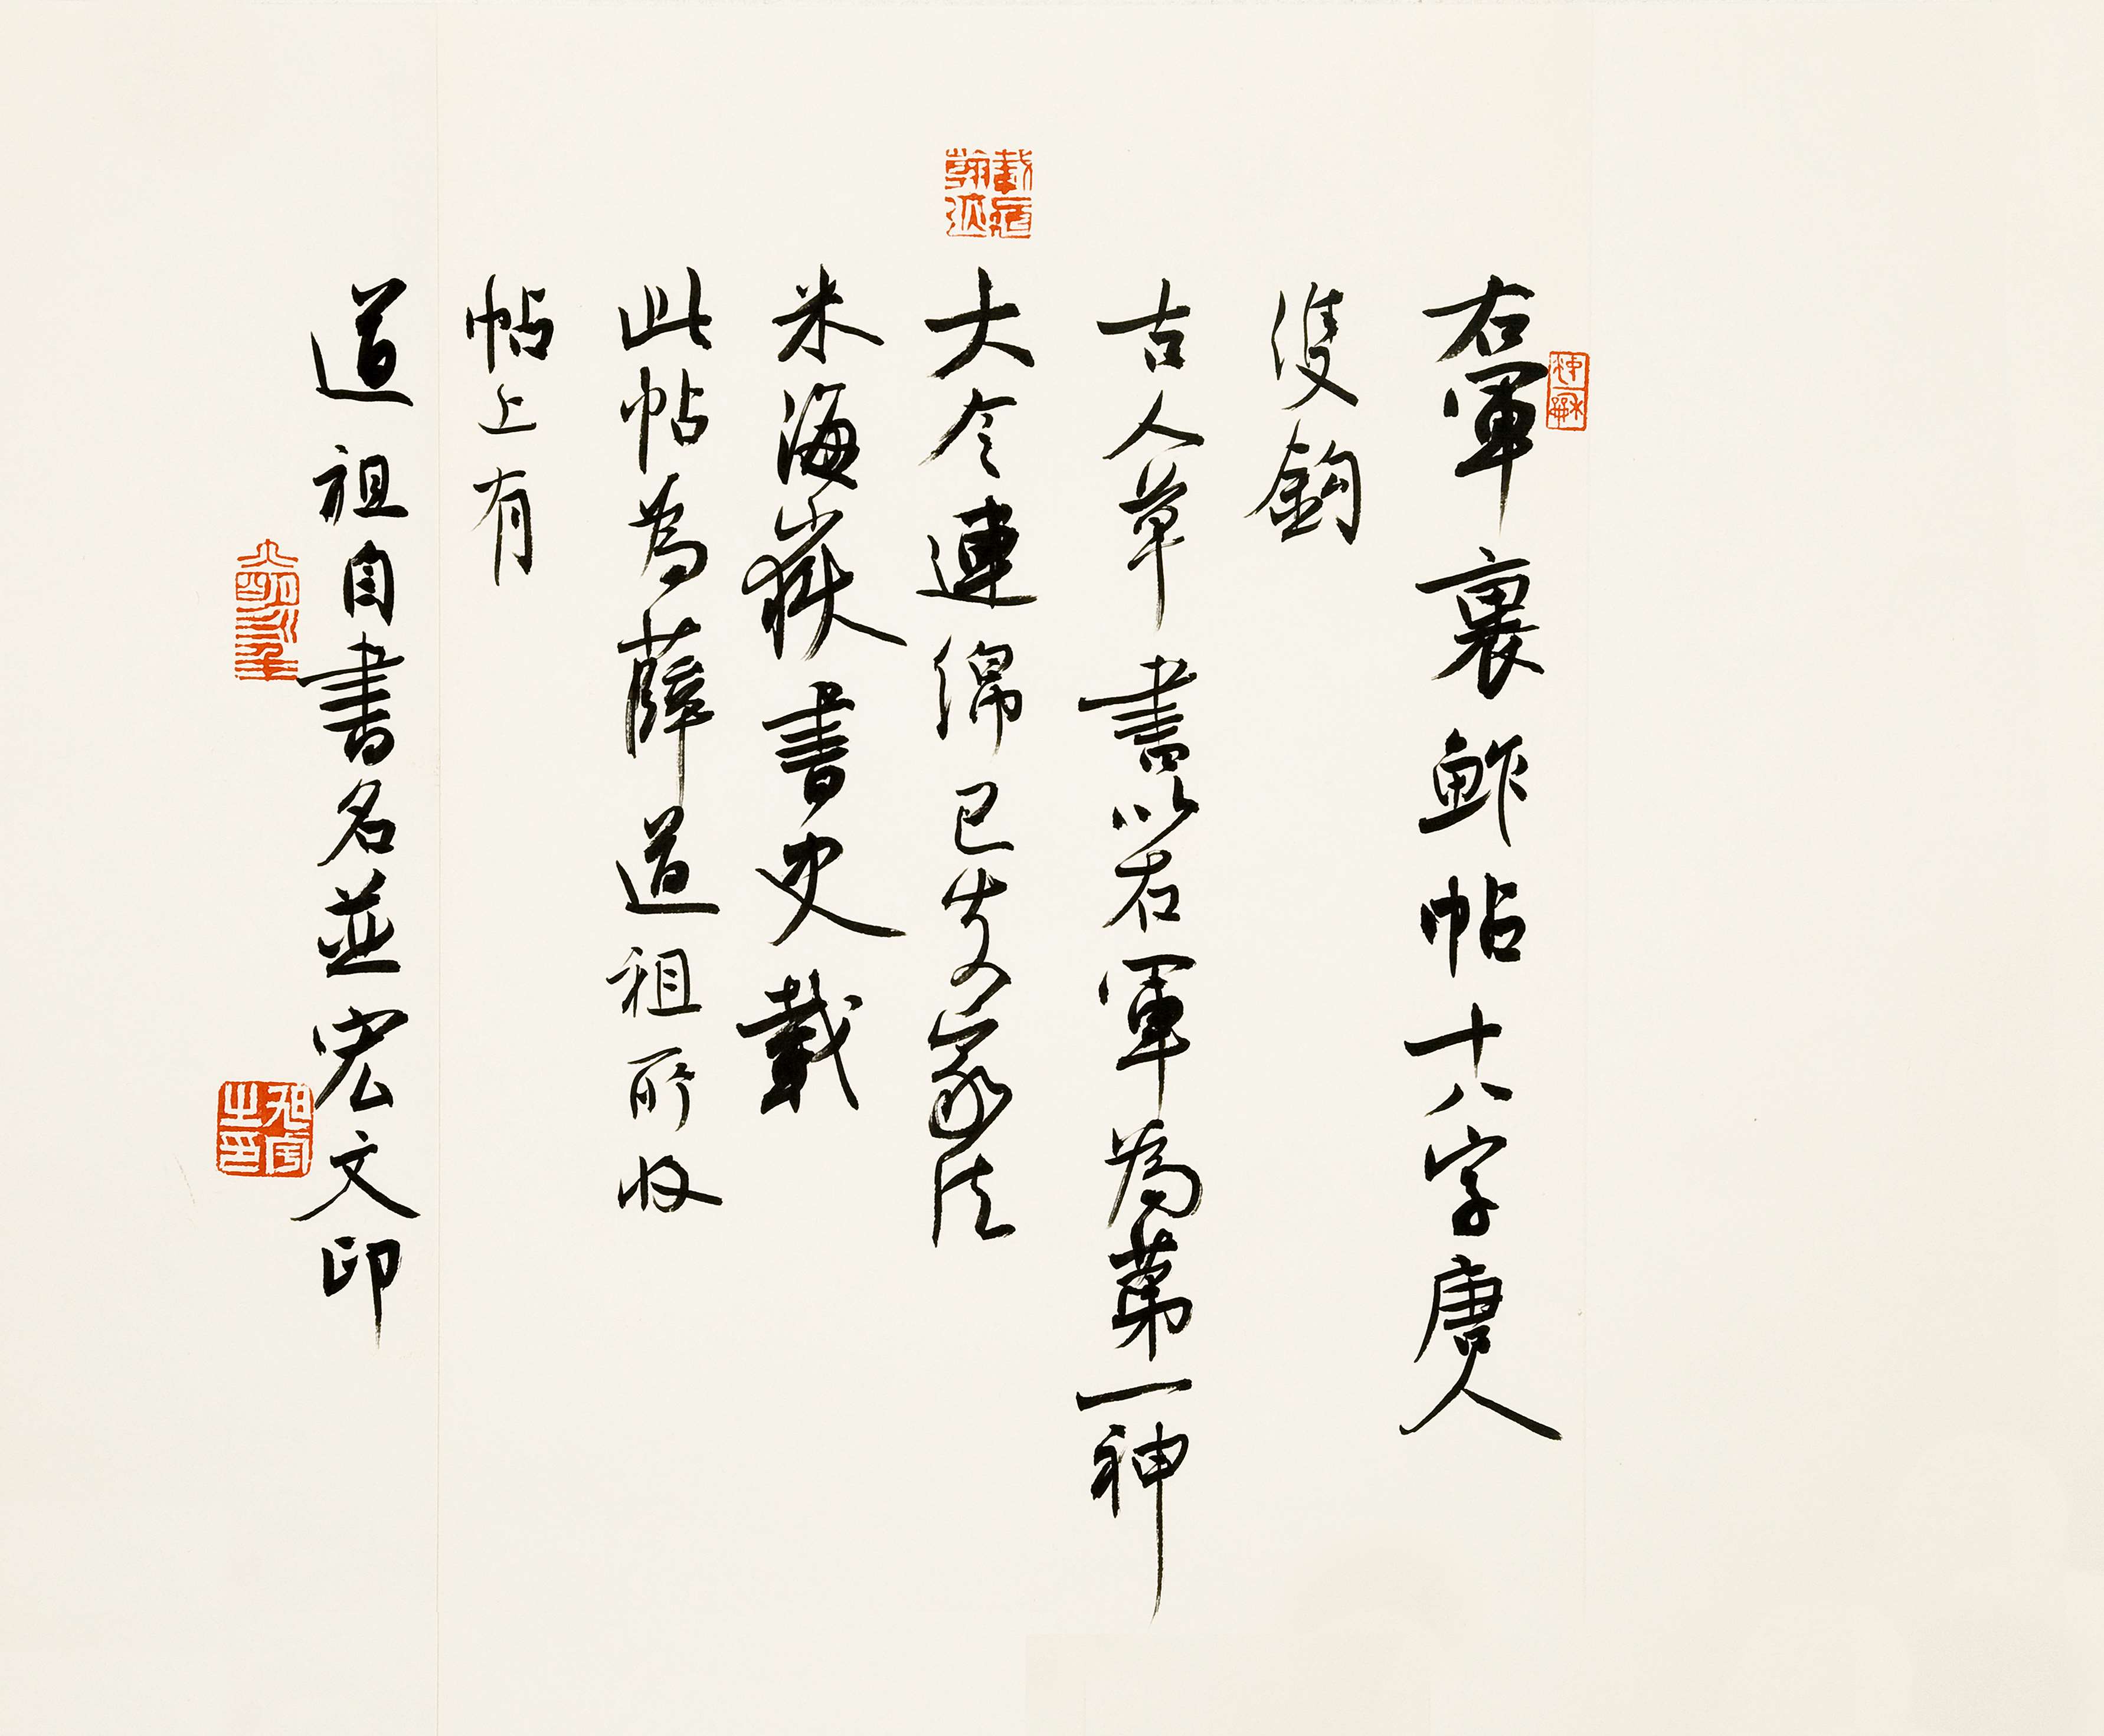 右軍裹鮓帖十八字唐人
雙鉤
古人草書以右軍為第一神
大令連綿已失家法
米海嶽書史載
此帖為薛道祖所收
帖上有
道祖自書名並宏文印